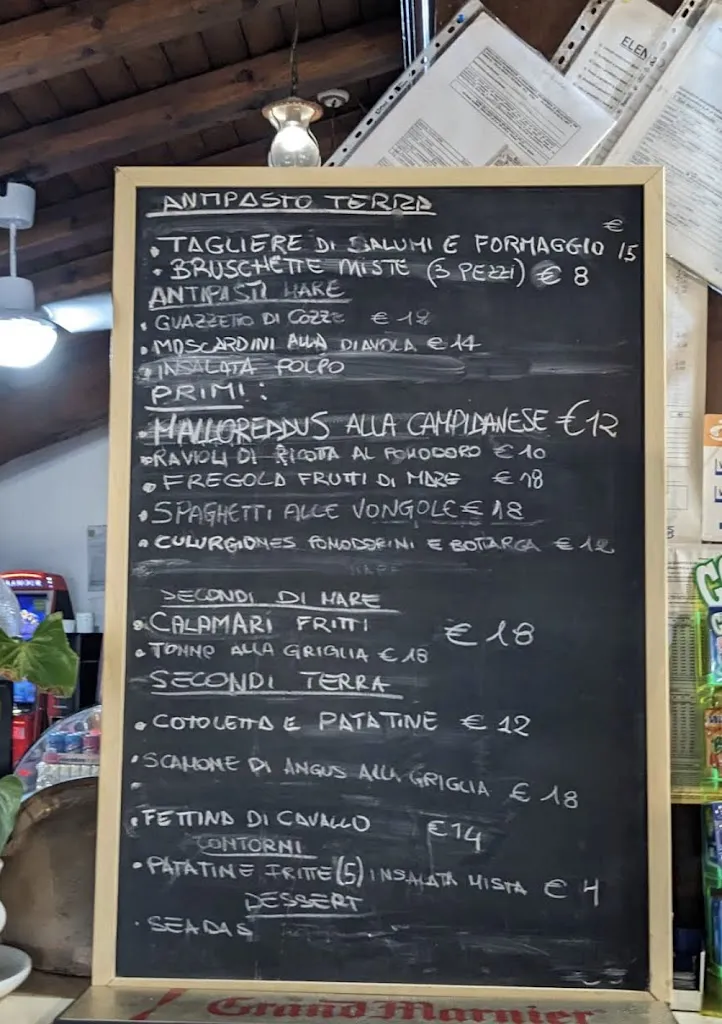 ELEN
ANTIPASTO TERRA
• TAGLIERE DI SALUMI E FORMAGGIO € 15
• BRUSCHETTE MISTE (3 PEZZI) € 8
ANTIPASTI MARE
• GUAZZETTO DI COZZE € 12
• MOSCARDINI ALLA DIAVOLA € 14
• INSALATA POLPO
PRIMI:
• MALLOREDDUS ALLA CAMPIDANESE €12
• RAVIOLI DI RICOTTA AL POMODORO € 10
• FREGOLA FRUTTI DI MARE € 18
• SPAGHETTI ALLE VONGOLE € 18
• CULURGIONES POMODORINI E BOTTARGA € 12
SECONDI DI MARE
• CALAMARI FRITTI € 18
• TONNO ALLA GRIGLIA € 18
SECONDI TERRA
• COTOLETTA E PATATINE € 12
• SCAMONE DI ANGUS ALLA GRIGLIA € 18
• FETTINA DI CAVALLO €14
CONTORNI
• PATATINE FRITTE (5) INSALATA MISTA € 4
DESSERT
• SEADAS
Grand Marnier